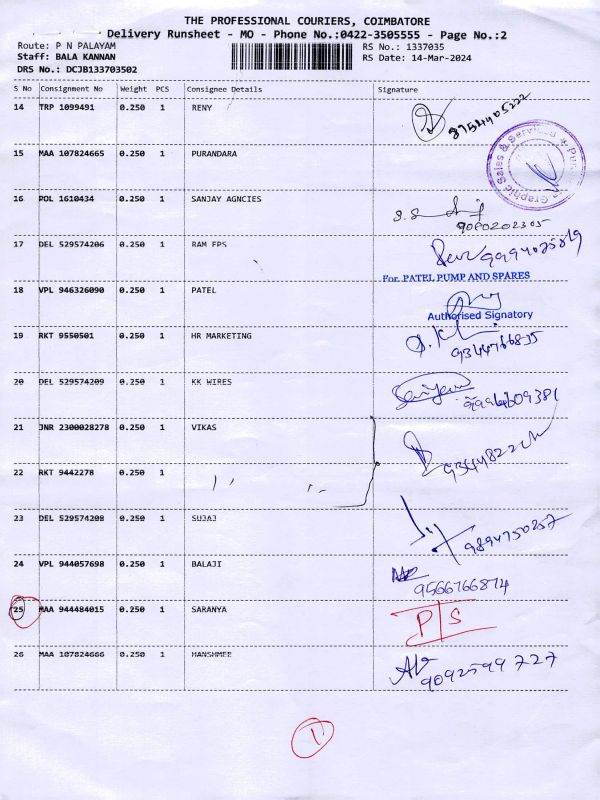 THE PROFESSIONAL COURIERS, COIMBATORE
Delivery Runsheet - MO - Phone No.:0422-3505555 - Page No.:2
Route: P N PALAYAM RS No.: 1337035
Staff: BALA KANNAN RS Date: 14-Mar-2024
DRS No.: DCJB133703502
S No Consignment No Weight PCS Consignee Details Signature
14 TRP 1099491 0.250 1 RENY
15 MAA 107824665 0.250 1 PURANDARA
Graphic Sales & Services
16 POL 1610434 0.250 1 SANJAY AGNCIES
9080202305
17 DEL 529574206 0.250 1 RAM FPS
For PATEL PUMP AND SPARES
18 VPL 946326090 0.250 1 PATEL
Authorised Signatory
19 RKT 9550501 0.250 1 HR MARKETING
9344766835
20 DEL 529574209 0.250 1 KK WIRES
21 JNR 2300028278 0.250 1 VIKAS
22 RKT 9442278 0.250 1
23 DEL 529574208 0.250 1 SUJAJ
9894750257
24 VPL 944057698 0.250 1 BALAJI
9566766874
25 MAA 944484015 0.250 1 SARANYA
P|S
26 MAA 107824666 0.250 1 HANSHMEE
9092599727
1